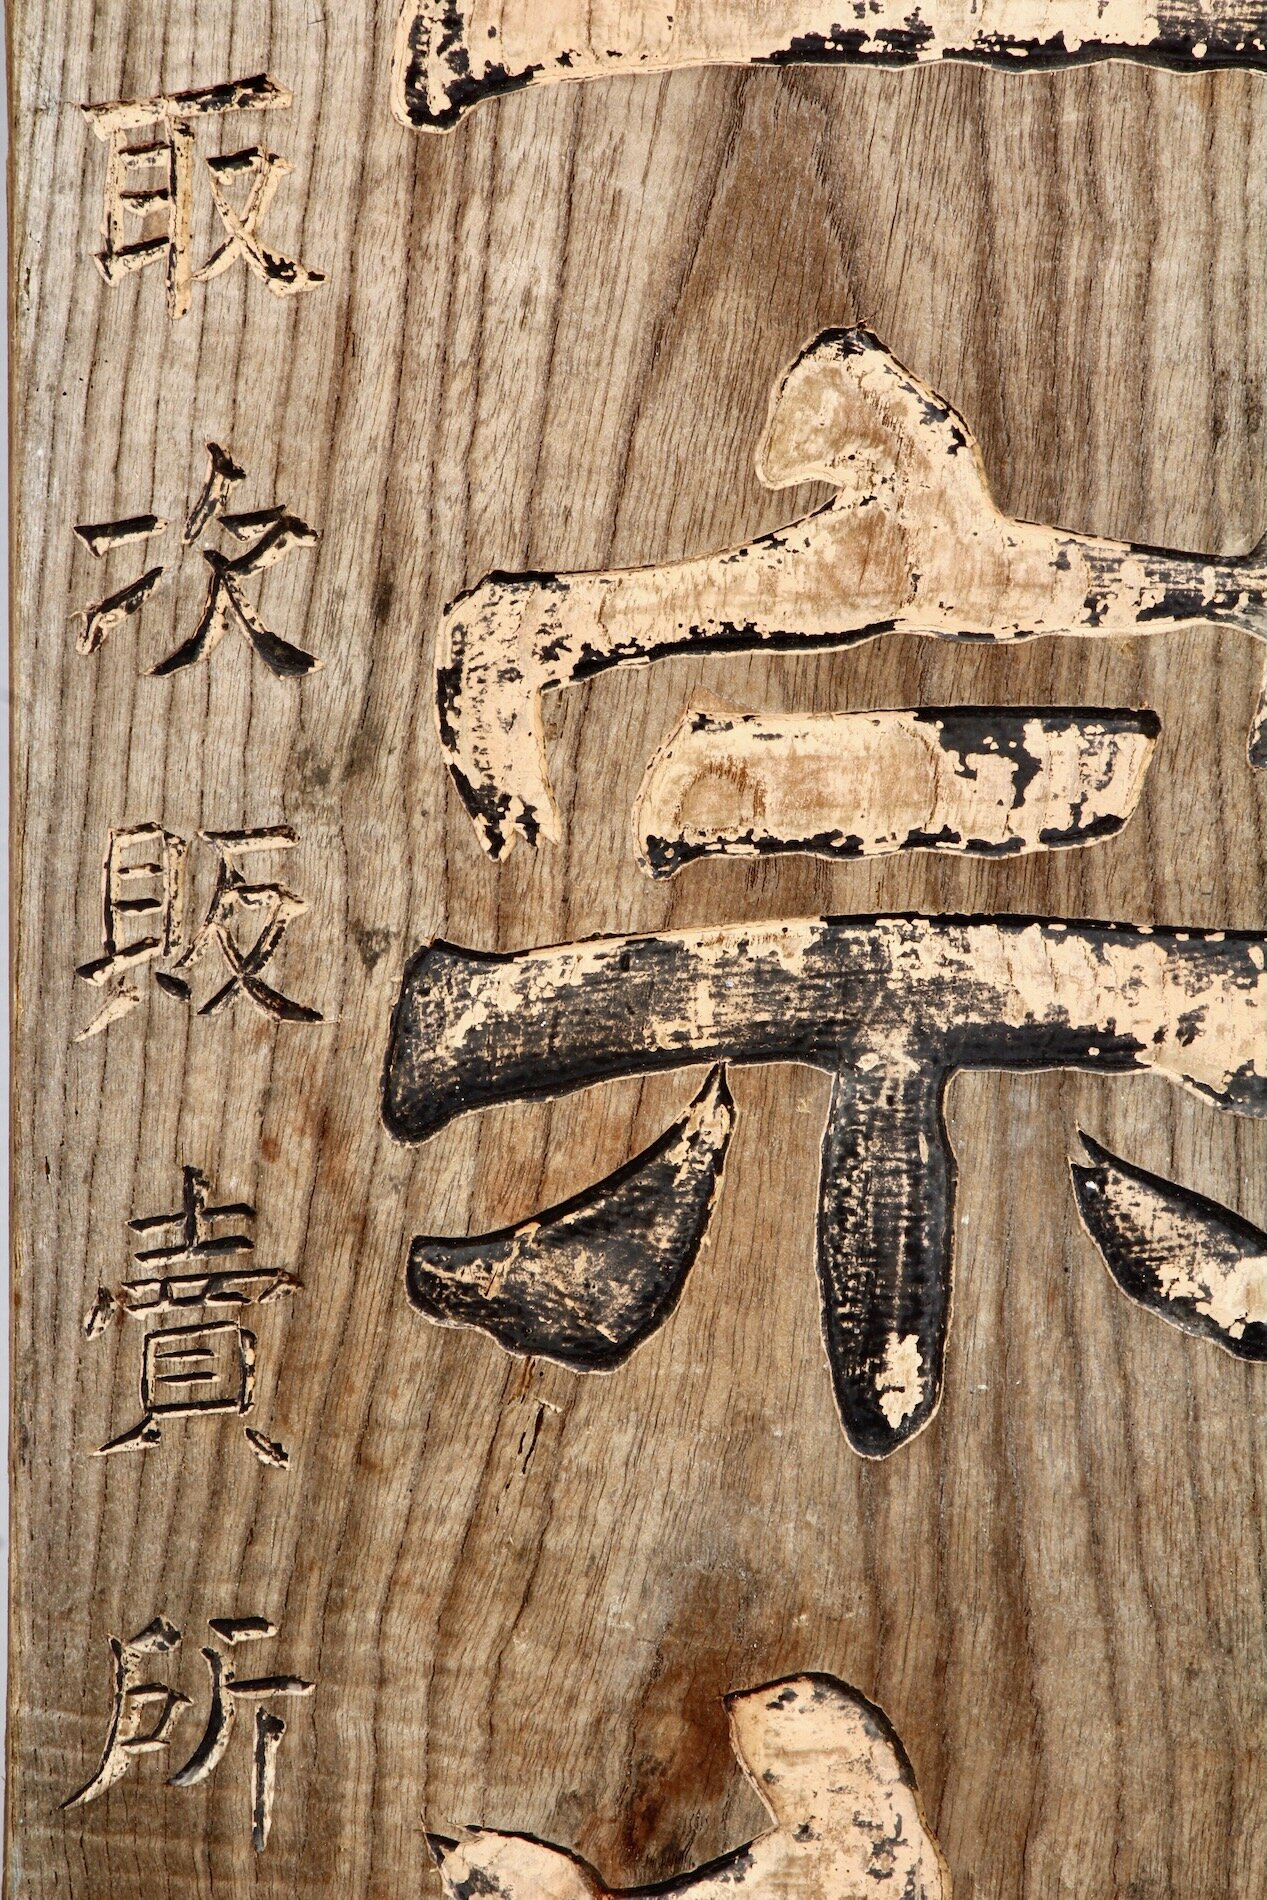 宗
取次販賣所